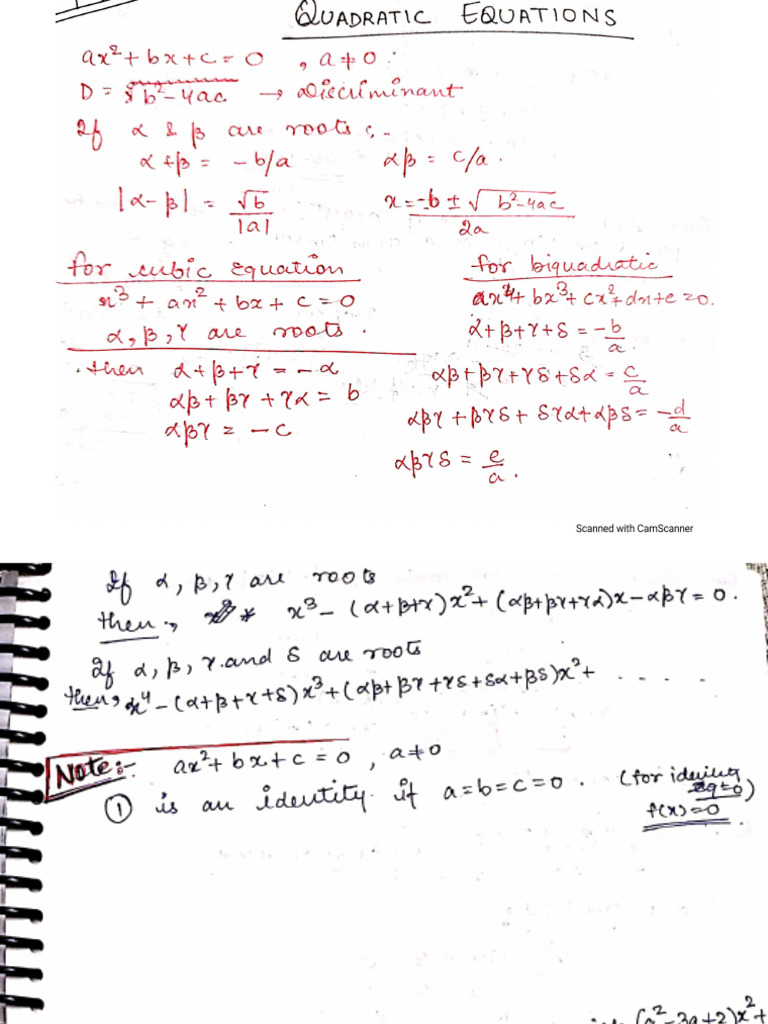 QUADRATIC EQUATIONS
ax²+bx+c=0 , a≠0.
D = b²-4ac → Discriminant
If α & β are roots :-
α+β = -b/a αβ = c/a.
|α-β| = √b/|a| x = -b ± √b²-4ac/2a
for cubic equation
x³+ax²+bx+c=0
α,β,γ are roots.
then α+β+γ = -a
αβ+βγ+γα = b
αβγ = -c
for biquadratic
ax⁴+bx³+cx²+dx+e=0.
α+β+γ+δ = -b/a.
αβ+βγ+γδ+δα = c/a
αβγ+βγδ+δγα+αβδ = -d/a
αβγδ = e/a.
Scanned with CamScanner
If α,β,γ are roots
then :, x³-(α+β+γ)x²+(αβ+βγ+γα)x-αβγ=0.
If α,β,γ and δ are roots
then, x⁴-(α+β+γ+δ)x³+(αβ+βγ+γδ+δα+βδ)x²+ . . . . .
Note:- ax²+bx+c=0 , a≠0
① is an identity if a=b=c=0. (for
=0)
f(x)=0
(a²-3a+2)x²+